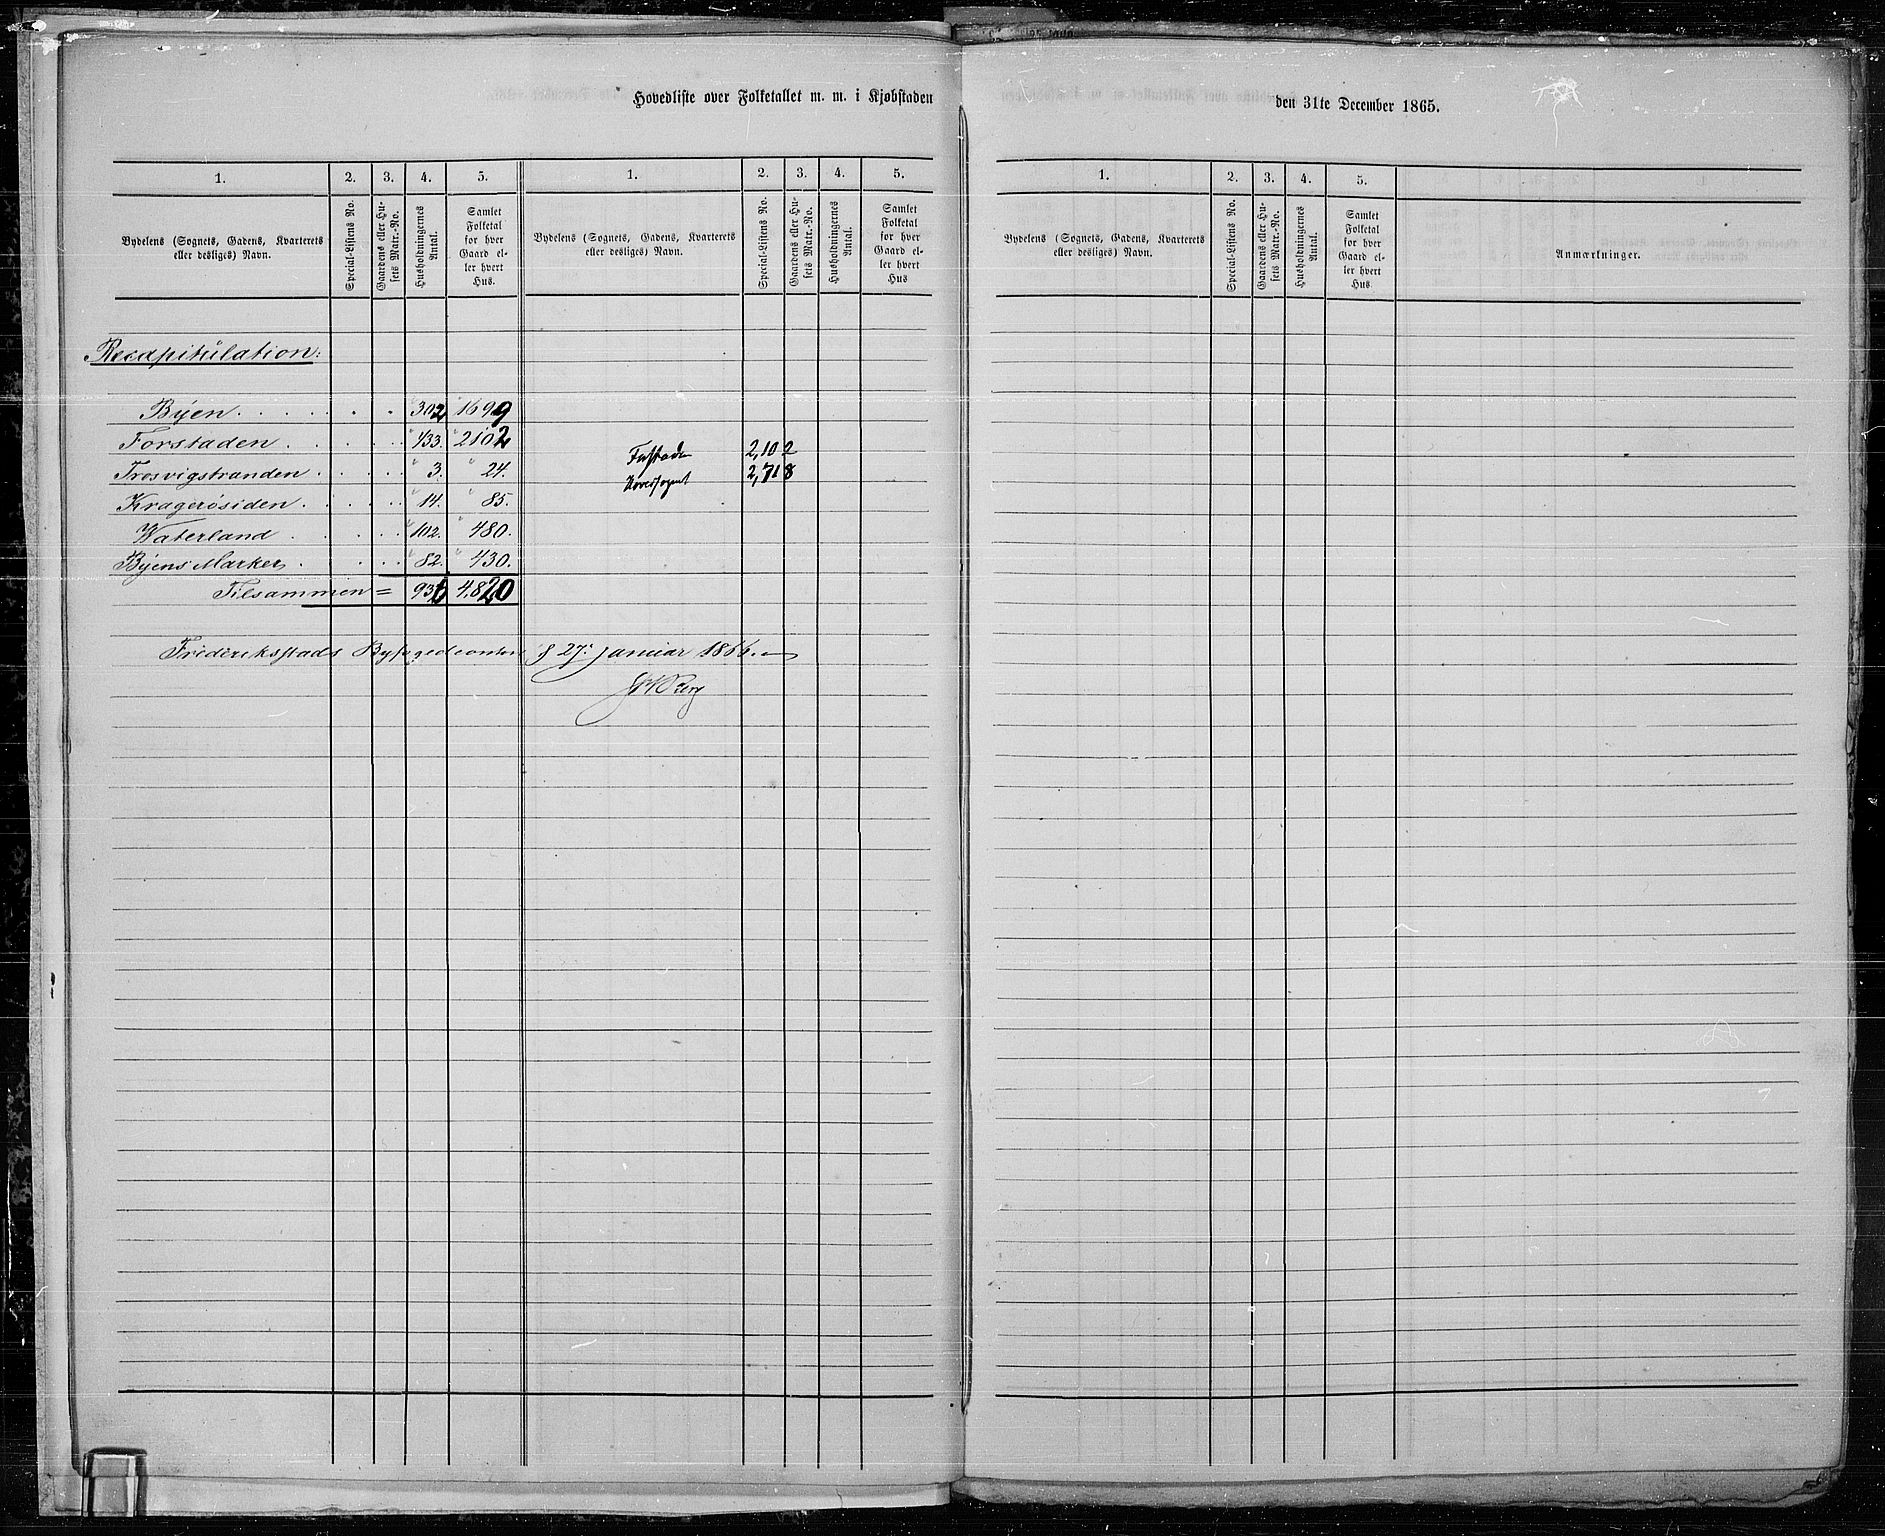 Hovedliste over Folketallet m. m. i Kjøbstaden den 31te December 1865.
1. 2. 3. 4. 5. 1. 2. 3. 4. 5.
Bydelens (Sognets, Gadens, Kvarterets eller desliges) Navn.
Special-Listens No.
Gaardens eller Husets Matr.-No.
Husholdningernes Antal.
Samlet Folketal for hver Gaard eller hvert Hus.
Bydelens (Sognets, Gadens, Kvarterets eller desliges) Navn.
Special-Listens No.
Gaardens eller Husets Matr.-No.
Husholdningernes Antal.
Samlet Folketal for hver Gaard eller hvert Hus
Recapitulation:
Byen . . . . . . . 302 1699
Forstaden . . . . . 433. 2102
Trosvigstranden . . . . . 3. 24.
Kragerösiden . . . . . 14. 85.
Waterland . . . . . 102. 480.
Byens Marker . . . . . 82. 430.
Tilsammen = 936 4,820
Forstaden 2,102
Hovedsognet 2,718
Frederiksstads Byfogedcontor d 27. Januar 1866.
Berg
1. 2. 3. 4. 5.
Bydelens (Sognets, Gadens, Kvarterets eller desliges) Navn.
Special-Listens No.
Gaardens eller Husets Matr.-No.
Husholdningernes Antal.
Samlet Folketal for hver Gaard eller hvert Hus
Anmærkninger.